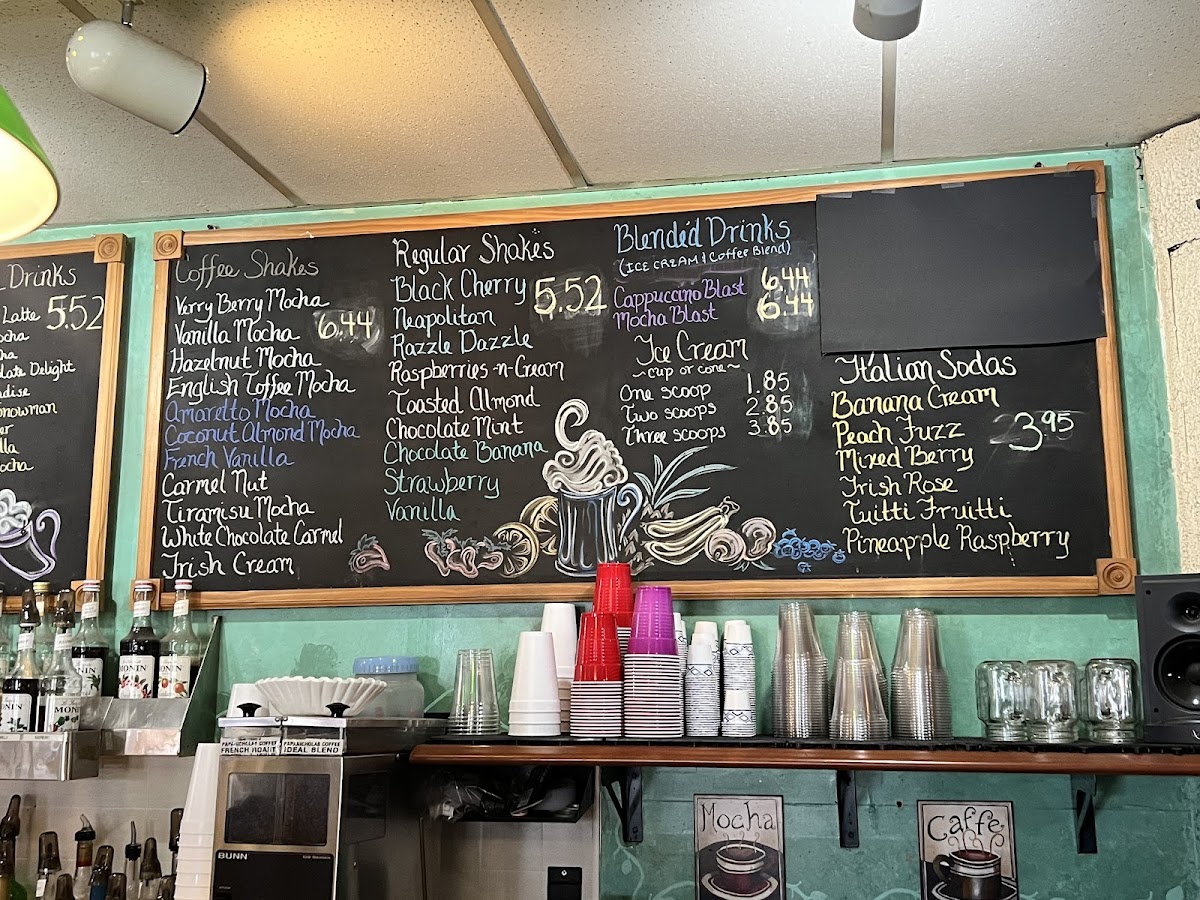 Drinks
Latte 5.52
ocha
ha
late Delight
adise
Snowman
er
lla
ocha
Coffee Shakes
Verry Berry Mocha
Vanilla Mocha 6.44
Hazelnut Mocha
English Toffee Mocha
Amaretto Mocha
Coconut Almond Mocha
French Vanilla
Carmel Nut
Tiramisu Mocha
White Chocolate Carmel
Irish Cream
Regular Shakes
Black Cherry 5.52
Neapolitan
Razzle Dazzle
Raspberries-n-Cream
Toasted Almond
Chocolate Mint
Chocolate Banana
Strawberry
Vanilla
Blended Drinks
(ICE CREAM & Coffee Blend)
Cappuccino Blast 6.44
Mocha Blast 6.44
Ice Cream
~cup or cone~
One scoop 1.85
Two scoops 2.85
Three scoops 3.85
Italian Sodas
Banana Cream
Peach Fuzz 3.95
Mixed Berry
Irish Rose
Tuitti Fruitti
Pineapple Raspberry
MONIN
MONIN
MONIN
MONIN
PAPANICHOLAS COFFEE
FRENCH ROAST
PAPANICHOLAS COFFEE
IDEAL BLEND
BUNN
Mocha
Caffe